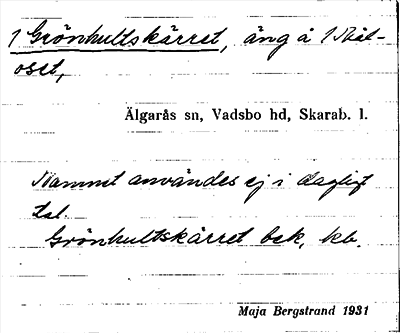 1 Grönhultskärret, äng å 1
oset,
Älgarås sn, Vadsbo hd, Skarab. l.
Namnet användes ej i dagligt
tal.
Grönhultskärret bek, kb.
Maja Bergstrand 1931